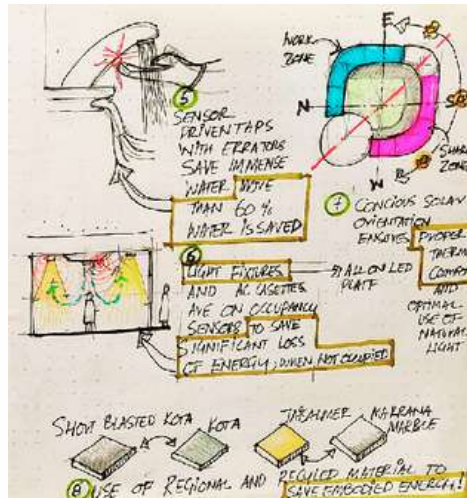 WORK
ZONE
E
N
S
W
SHARED
ZONE
5
SENSOR
DRIVEN TAPS
WITH ERRATORS
SAVE IMMENSE
WATER MORE
THAN 60%
WATER IS SAVED
7 CONCIOUS SOLAR
ORIENTATION
ENSURES PROPER
THERM
COMFO
AND
OPTIMAL
USE OF
NATURAL
LIGHT
6
LIGHT FIXTURES
AND AC CASETTES
ARE ON OCCUPANCY
SENSORS TO SAVE
SIGNIFICANT LOSS
OF ENERGY, WHEN NOT OCCUPIED
ALL ON LED
PLATE
SHOT BLASTED KOTA
KOTA
JAISALMER
MAKRANA
MARBLE
8 USE OF REGIONAL AND RECYCLED MATERIAL TO
SAVE EMBODIED ENERGY!